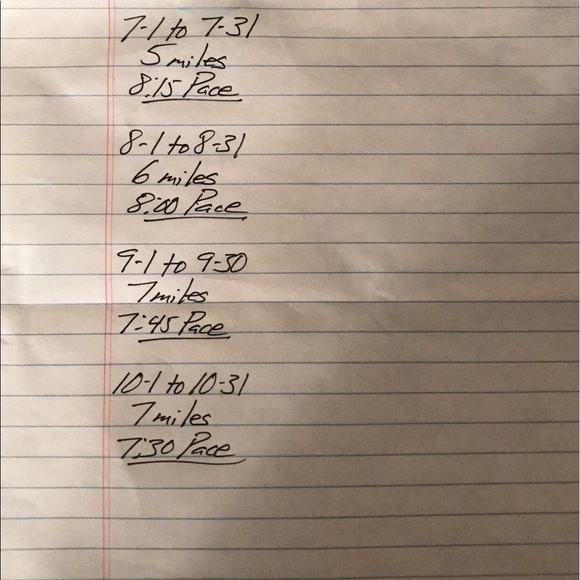 7-1 to 7-31
5 miles
8:15 Pace
8-1 to 8-31
6 miles
8:00 Pace
9-1 to 9-30
7 miles
7:45 Pace
10-1 to 10-31
7 miles
7:30 Pace